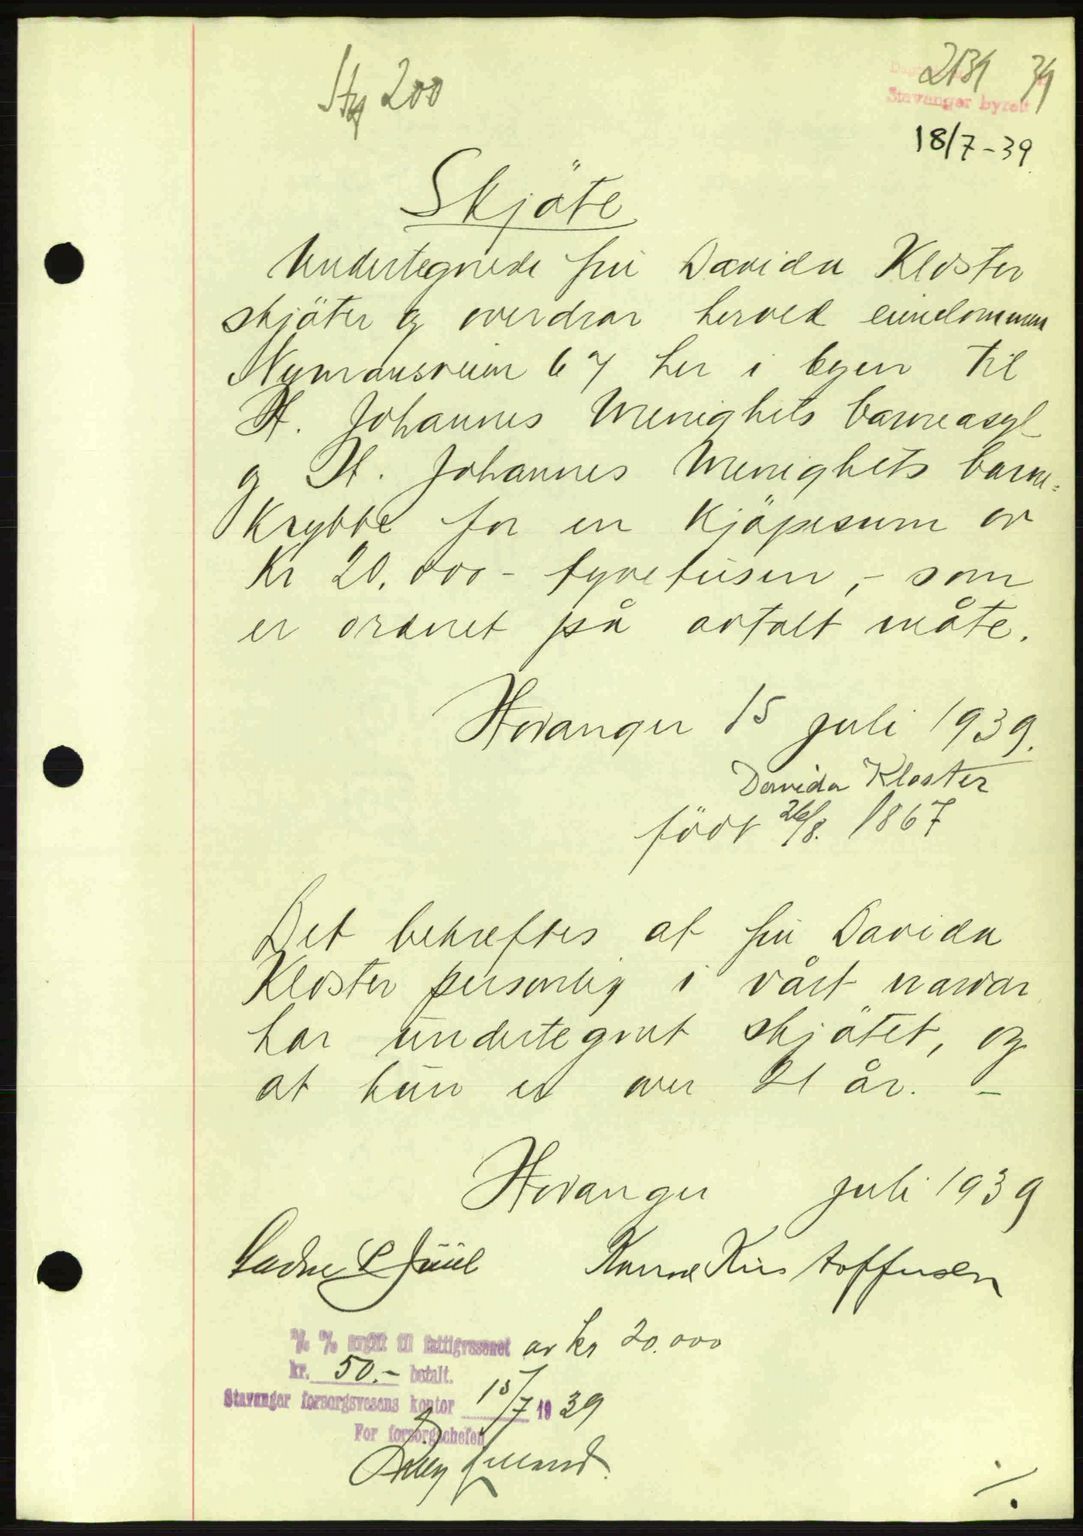 Stp 200
2131 39
Stavanger byrett
18/7-39
Skjöte
Undertegnede frú Davida Kloster
skjöter og overdrar herved eiendommen
Nymansveien 67 her i byen til
St. Johannes Menighets barneasyl
og St. Johannes Menighets barne=
krybbe for en kjöpesum av
Kr 20.000 - tyvetusen,- som
er ordnet på avtalt måte.
Stavanger 15 juli 1939.
Davida Kloster
födt 26/8. 1867
Det bekreftes at frú Davida
Kloster personlig i vårt nærvær
har undertegnet skjötet, og
at hun er over 21 år. -
Stavanger juli 1939
Kristoffersen
% avgift til fattigvesenet av kr 20.000
kr. 50.- betalt.
Stavanger forsorgsvesens kontor 15/7 1939
For forsorgschefen